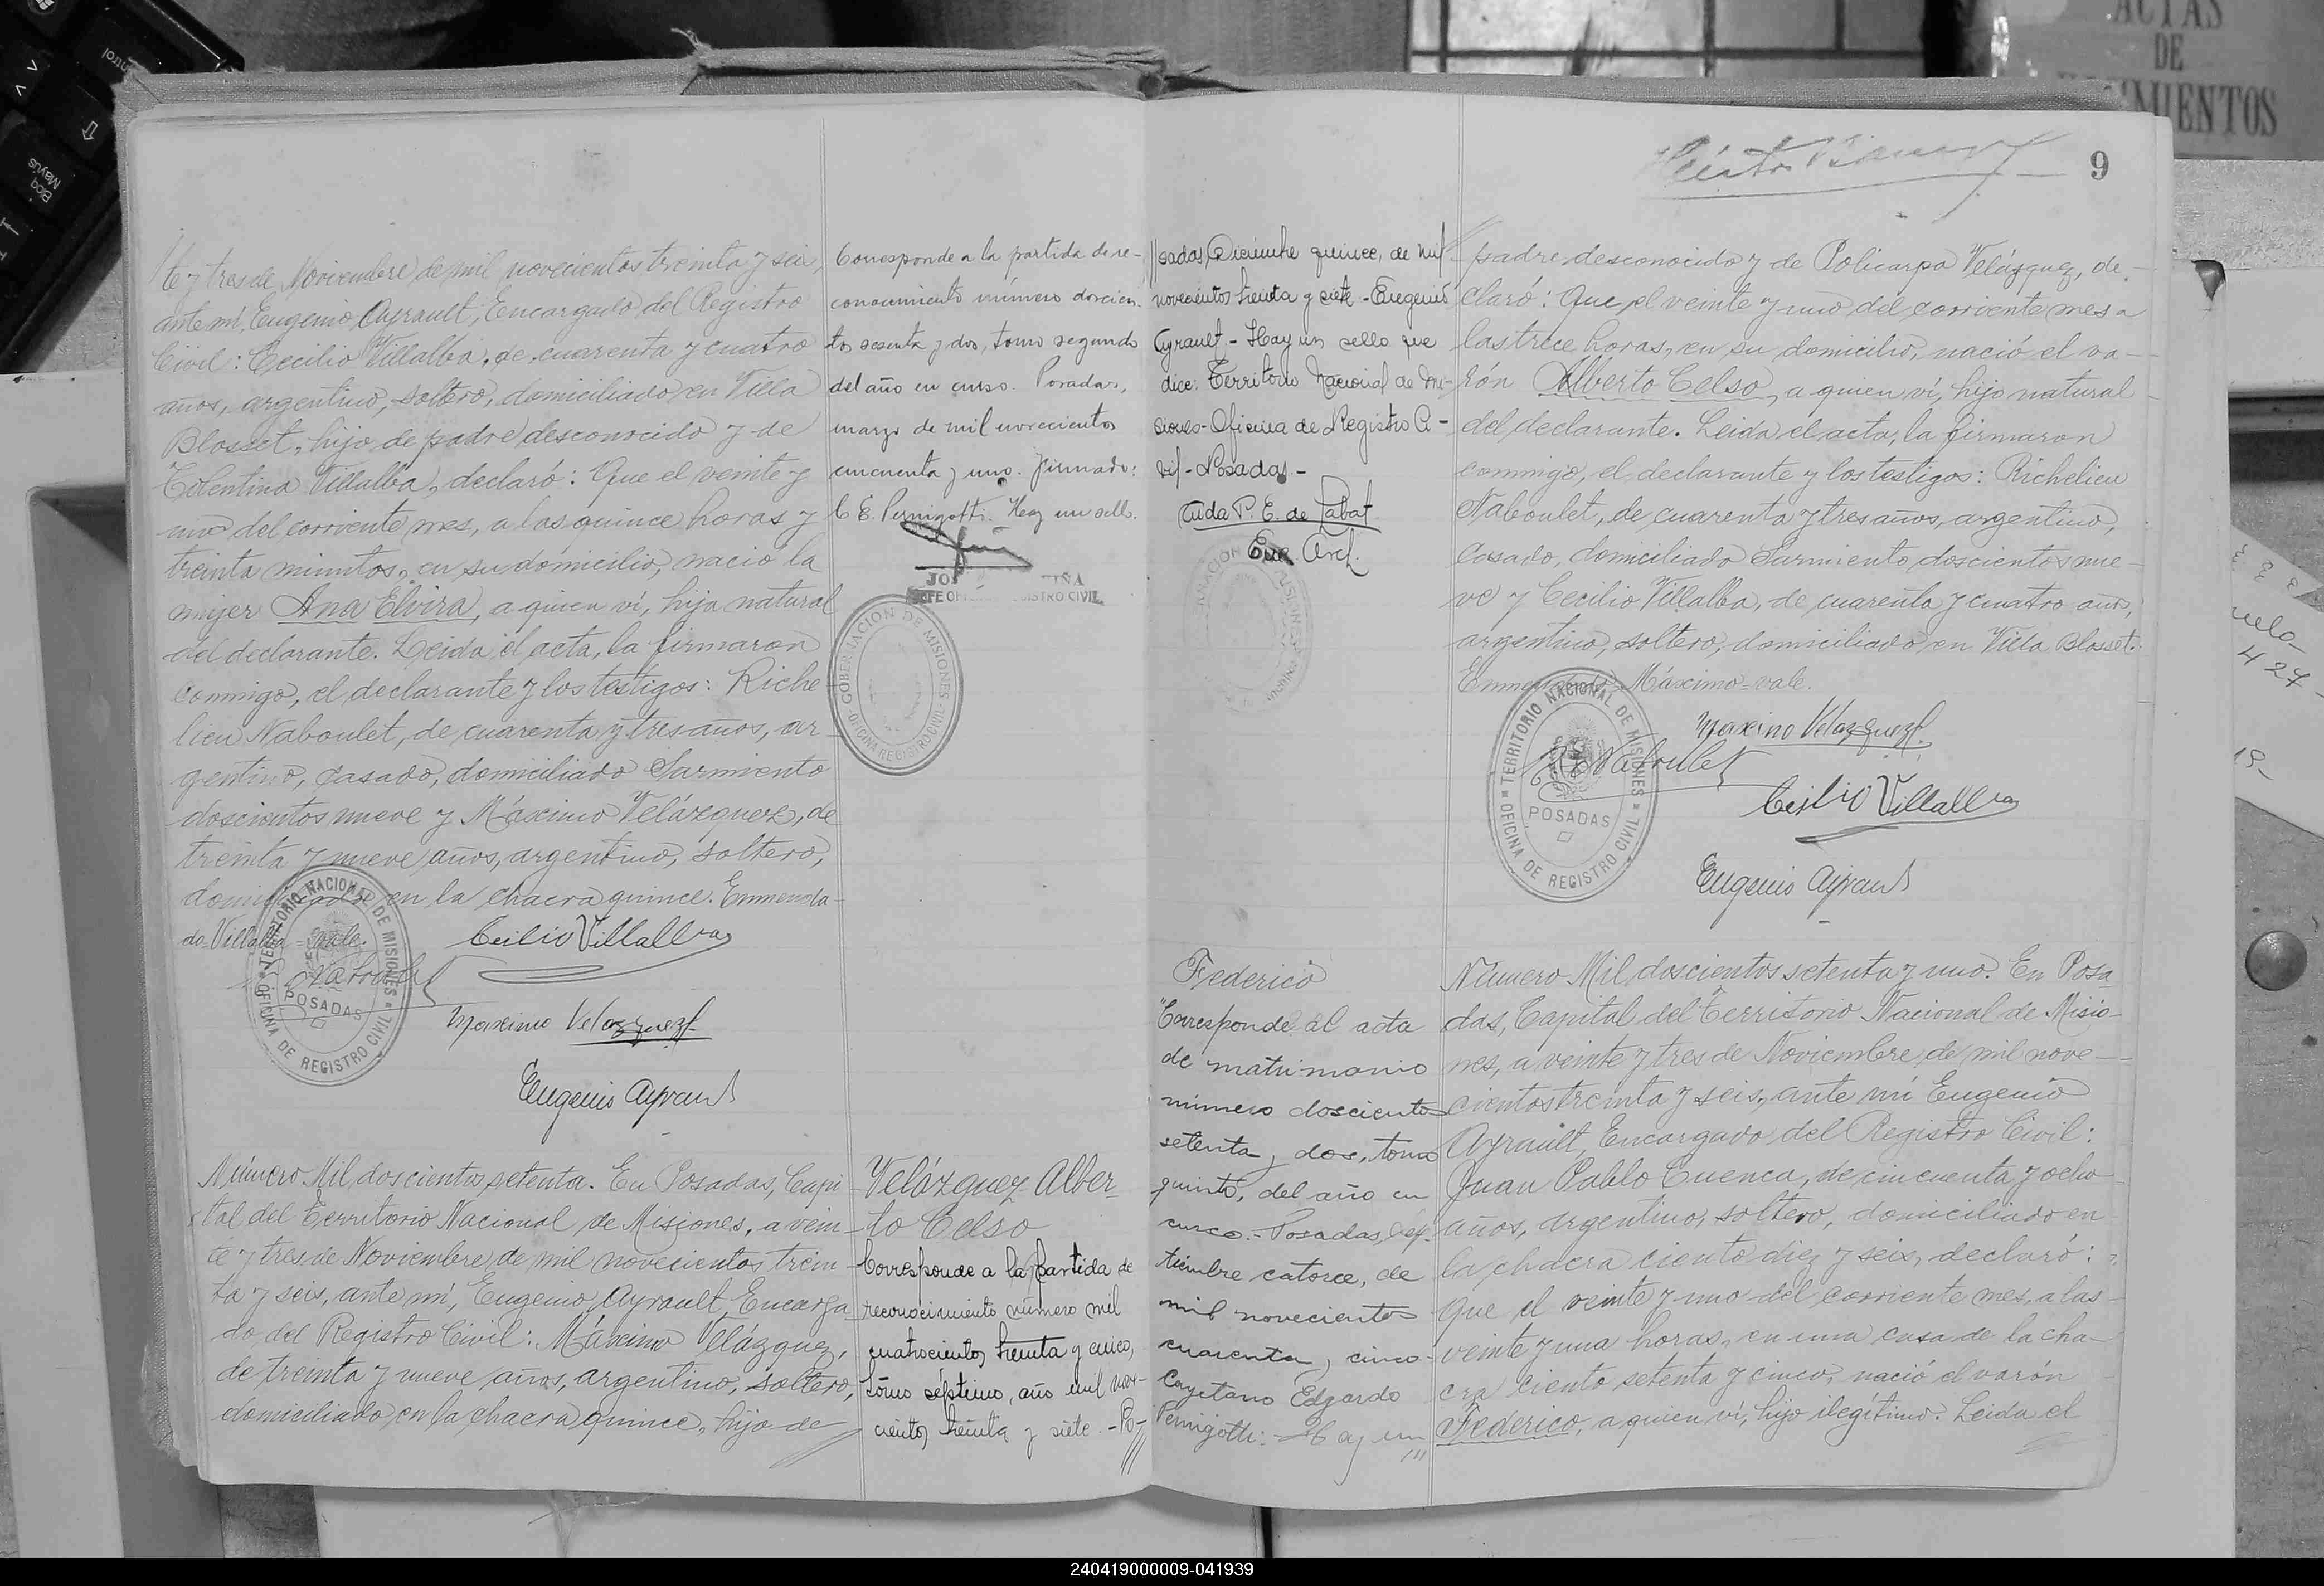 te y tres de Noviembre de mil novecientos treinta y seis,
ante mí, Eugenio Ayrault, Encargado del Registro
Civil: Cecilio Villalba, de cuarenta y cuatro
años, argentino, soltero, domiciliado en Villa
Blosset, hijo de padre desconocido y de
Tolentina Villalba, declaró: Que el veinte y
uno del corriente mes, a las quince horas y
treinta minutos, en su domicilio, nació la
mujer Ana Elvira, a quien ví, hija natural
del declarante. Leida el acta, la firmaron
conmigo, el declarante y los testigos: Riche-
lieu Naboulet, de cuarenta y tres años, ar-
gentino, casado, domiciliado Sarmiento
doscientos nueve y Máximo Velázquez, de
treinta y nueve años, argentino, soltero,
domiciliado en la chacra quince. Enmenda-
do=Villalba=vale.
Cecilio Villalba
Naboulet
Maximo Velazquez
Eugenio Ayrault
TERRITORIO NACIONAL DE MISIONES
POSADAS
OFICINA DE REGISTRO CIVIL
Número Mil doscientos setenta. En Posadas, Capi-
tal del Territorio Nacional de Misiones, a vein-
te y tres de Noviembre de mil novecientos trein-
ta y seis, ante mí, Eugenio Ayrault, Encarga-
do del Registro Civil: Máximo Velázquez,
de treinta y nueve años, argentino, soltero,
domiciliado en la chacra quince, hijo de
Corresponde a la partida de re-
conocimiento número doscien-
tos sesenta y dos, tomo segundo
del año en curso. Posadas,
marzo de mil novecientos
cincuenta y uno. firmado:
C. E. Pernigotti. Hay un sello.
GOBERNACION DE MISIONES
OFICINA REGISTRO CIVIL
Velázquez Alber-
to Celso
Corresponde a la partida de
reconocimiento número mil
cuatrocientos treinta y cinco,
tomo séptimo, año mil nove-
cientos treinta y siete.-Po-
sadas, Diciembre quince, de mil
novecientos treinta y siete-Eugenio
Ayrault.-Hay un sello que
dice: Territorio Nacional de Mi-
siones-Oficina de Registro Ci-
vil-Posadas-
P. E. de Labat
Enc. Arch.
9
padre desconocido y de Policarpa Velázquez, de-
claró: Que el veinte y uno del corriente mes a
las trece horas, en su domicilio, nació el va-
rón Alberto Celso, a quien ví, hijo natural
del declarante. Leida el acta, la firmaron
conmigo, el declarante y los testigos: Richelieu
Naboulet, de cuarenta y tres años, argentino,
casado, domiciliado Sarmiento doscientos nue-
ve y Cecilio Villalba, de cuarenta y cuatro años,
argentino, soltero, domiciliado en Villa Blosset.
Máximo=vale.
Maximo Velazquez
R. Naboulet
Cecilio Villalba
Eugenio Ayrault
TERRITORIO NACIONAL DE MISIONES
POSADAS
OFICINA DE REGISTRO CIVIL
Federico
"Corresponde al acta
de matrimonio
número doscientos
setenta y dos, tomo
quinto, del año en
curso.- Posadas, Sep-
tiembre catorce, de
mil novecientos
cuarenta y cinco-
Cayetano Edgardo
Pernigotti.- Hay un
Número Mil doscientos setenta y uno. En Posa-
das, Capital del Territorio Nacional de Misio-
nes, a veinte y tres de Noviembre de mil nove-
cientos treinta y seis, ante mí Eugenio
Ayrault, Encargado del Registro Civil:
Juan Pablo Cuenca, de cincuenta y ocho
años, argentino, soltero, domiciliado en
la chacra ciento diez y seis, declaró:
Que el veinte y uno del corriente mes, a las
veinte y una horas, en una casa de la cha-
cra ciento setenta y cinco, nació el varón
Federico, a quien ví, hijo ilegítimo. Leida el
ACTAS
DE
240419000009-041939